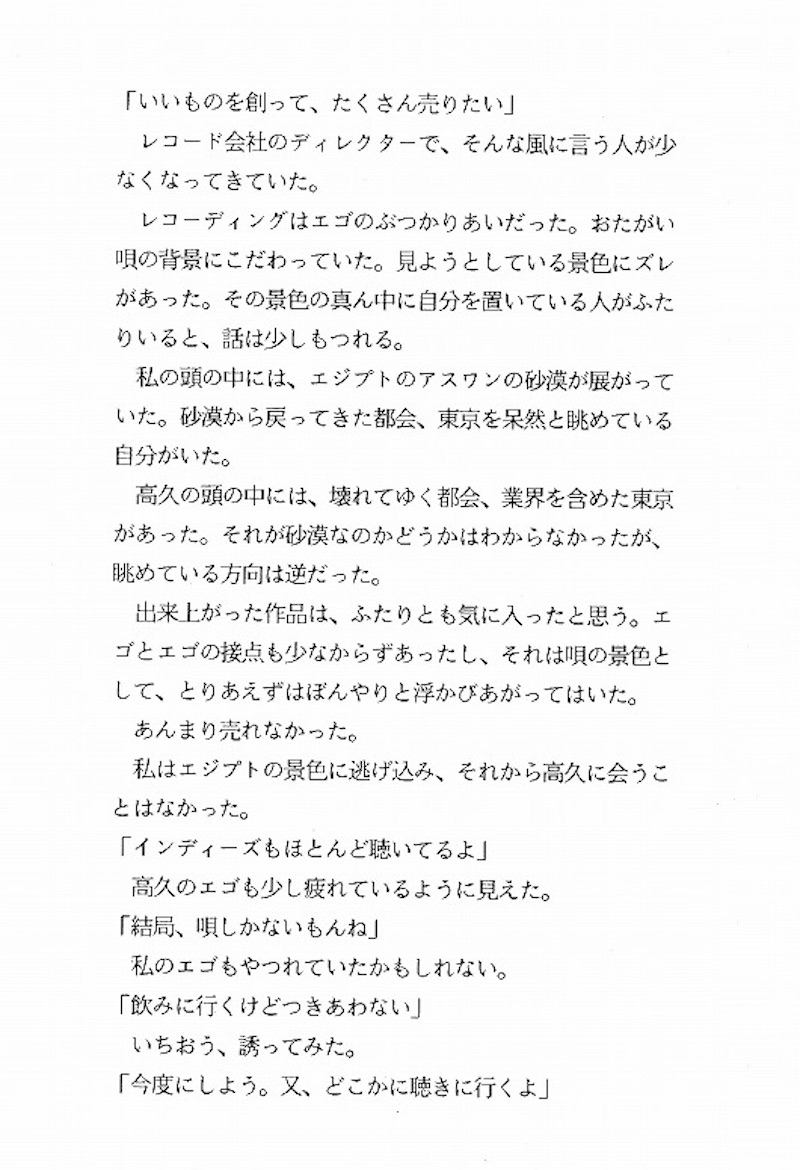 「いいものを創って、たくさん売りたい」
レコード会社のディレクターで、そんな風に言う人が少
なくなってきていた。
レコーディングはエゴのぶつかりあいだった。おたがい
唄の背景にこだわっていた。見ようとしている景色にズレ
があった。その景色の真ん中に自分を置いている人がふた
りいると、話は少しもつれる。
私の頭の中には、エジプトのアスワンの砂漠が展がって
いた。砂漠から戻ってきた都会、東京を呆然と眺めている
自分がいた。
高久の頭の中には、壊れてゆく都会、業界を含めた東京
があった。それが砂漠なのかどうかはわからなかったが、
眺めている方向は逆だった。
出来上がった作品は、ふたりとも気に入ったと思う。エ
ゴとエゴの接点も少なからずあったし、それは唄の景色と
して、とりあえずはぼんやりと浮かびあがってはいた。
あんまり売れなかった。
私はエジプトの景色に逃げ込み、それから高久に会うこ
とはなかった。
「インディーズもほとんど聴いてるよ」
高久のエゴも少し疲れているように見えた。
「結局、唄しかないもんね」
私のエゴもやつれていたかもしれない。
「飲みに行くけどつきあわない」
いちおう、誘ってみた。
「今度にしよう。又、どこかに聴きに行くよ」